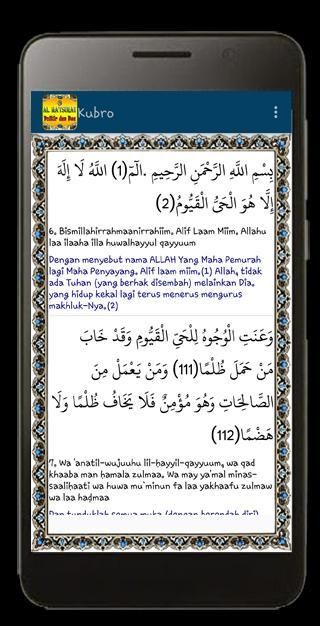 AL MA'TSURAT
Dzikir dan Doa
Kubro
بِسْمِ اللَّهِ الرَّحْمَنِ الرَّحِيمِ .الٓمٓ(1) اللَّهُ لَا إِلَهَ
إِلَّا هُوَ الْحَيُّ الْقَيُّومُ(2)
6. Bismillahirrahmaanirrahiim. Alif Laam Miim. Allahu
laa ilaaha illa huwalhayyul qayyuum
Dengan menyebut nama ALLAH Yang Maha Pemurah
lagi Maha Penyayang. Alif laam miim.(1) Allah, tidak
ada Tuhan (yang berhak disembah) melainkan Dia.
yang hidup kekal lagi terus menerus mengurus
makhluk-Nya.(2)
وَعَنَتِ الْوُجُوهُ لِلْحَيِّ الْقَيُّومِ وَقَدْ خَابَ
مَنْ حَمَلَ ظُلْمًا(111) وَمَنْ يَعْمَلْ مِنَ
الصَّالِحَاتِ وَهُوَ مُؤْمِنٌ فَلَا يَخَافُ ظُلْمًا وَلَا
هَضْمًا(112)
7. Wa 'anatil-wujuuhu lil-ḥayyil-qayyuum, wa qad
khaaba man ḥamala zulmaa. Wa may ya'mal minas-
saaliḥaati wa huwa mu`minun fa laa yakhaafu zulmaw
wa laa haḍmaa
Dan tunduklah semua muka (dengan berendah diri)